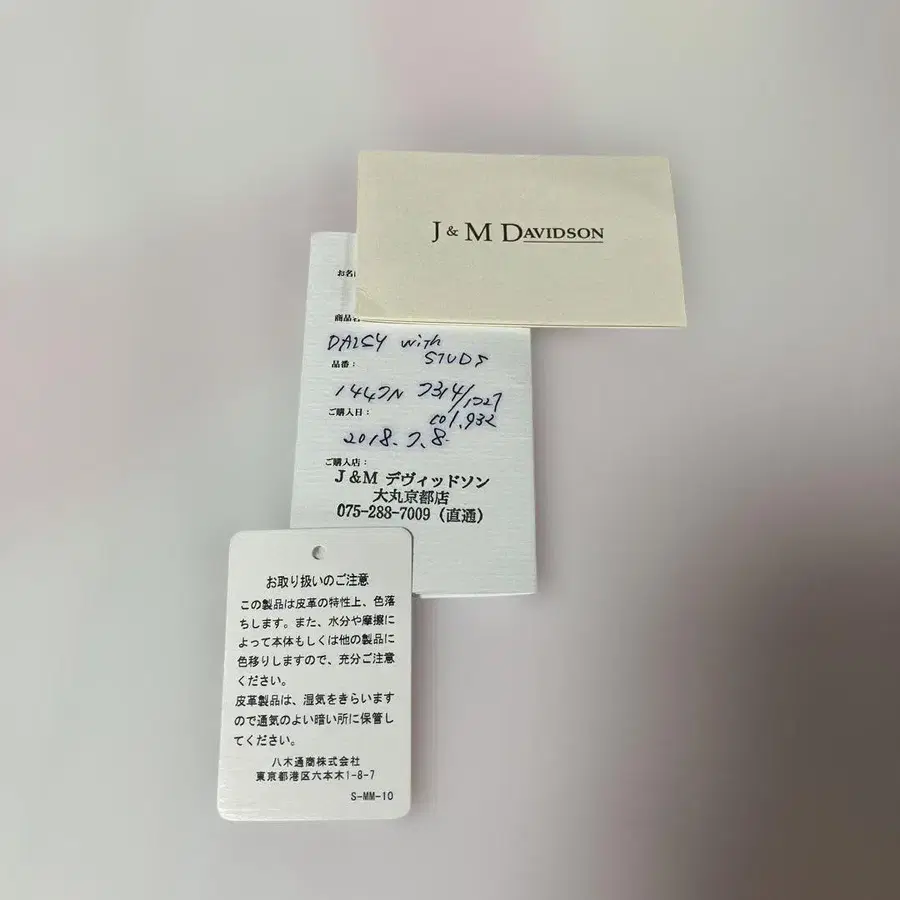 J & M DAVIDSON
お名前
商品名
DAISY with
STUDS
品番：
1447N 7314/1727
col.932
ご購入日：
2018.7.8.
ご購入店：
J & M デヴィッドソン
大丸京都店
075-288-7009（直通）
お取り扱いのご注意
この製品は皮革の特性上、色落
ちします。また、水分や摩擦に
よって本体もしくは他の製品に
色移りしますので、充分ご注意
ください。
皮革製品は、湿気をきらいます
ので通気のよい暗い所に保管し
てください。
八木通商株式会社
東京都港区六本木1-8-7
S-MM-10